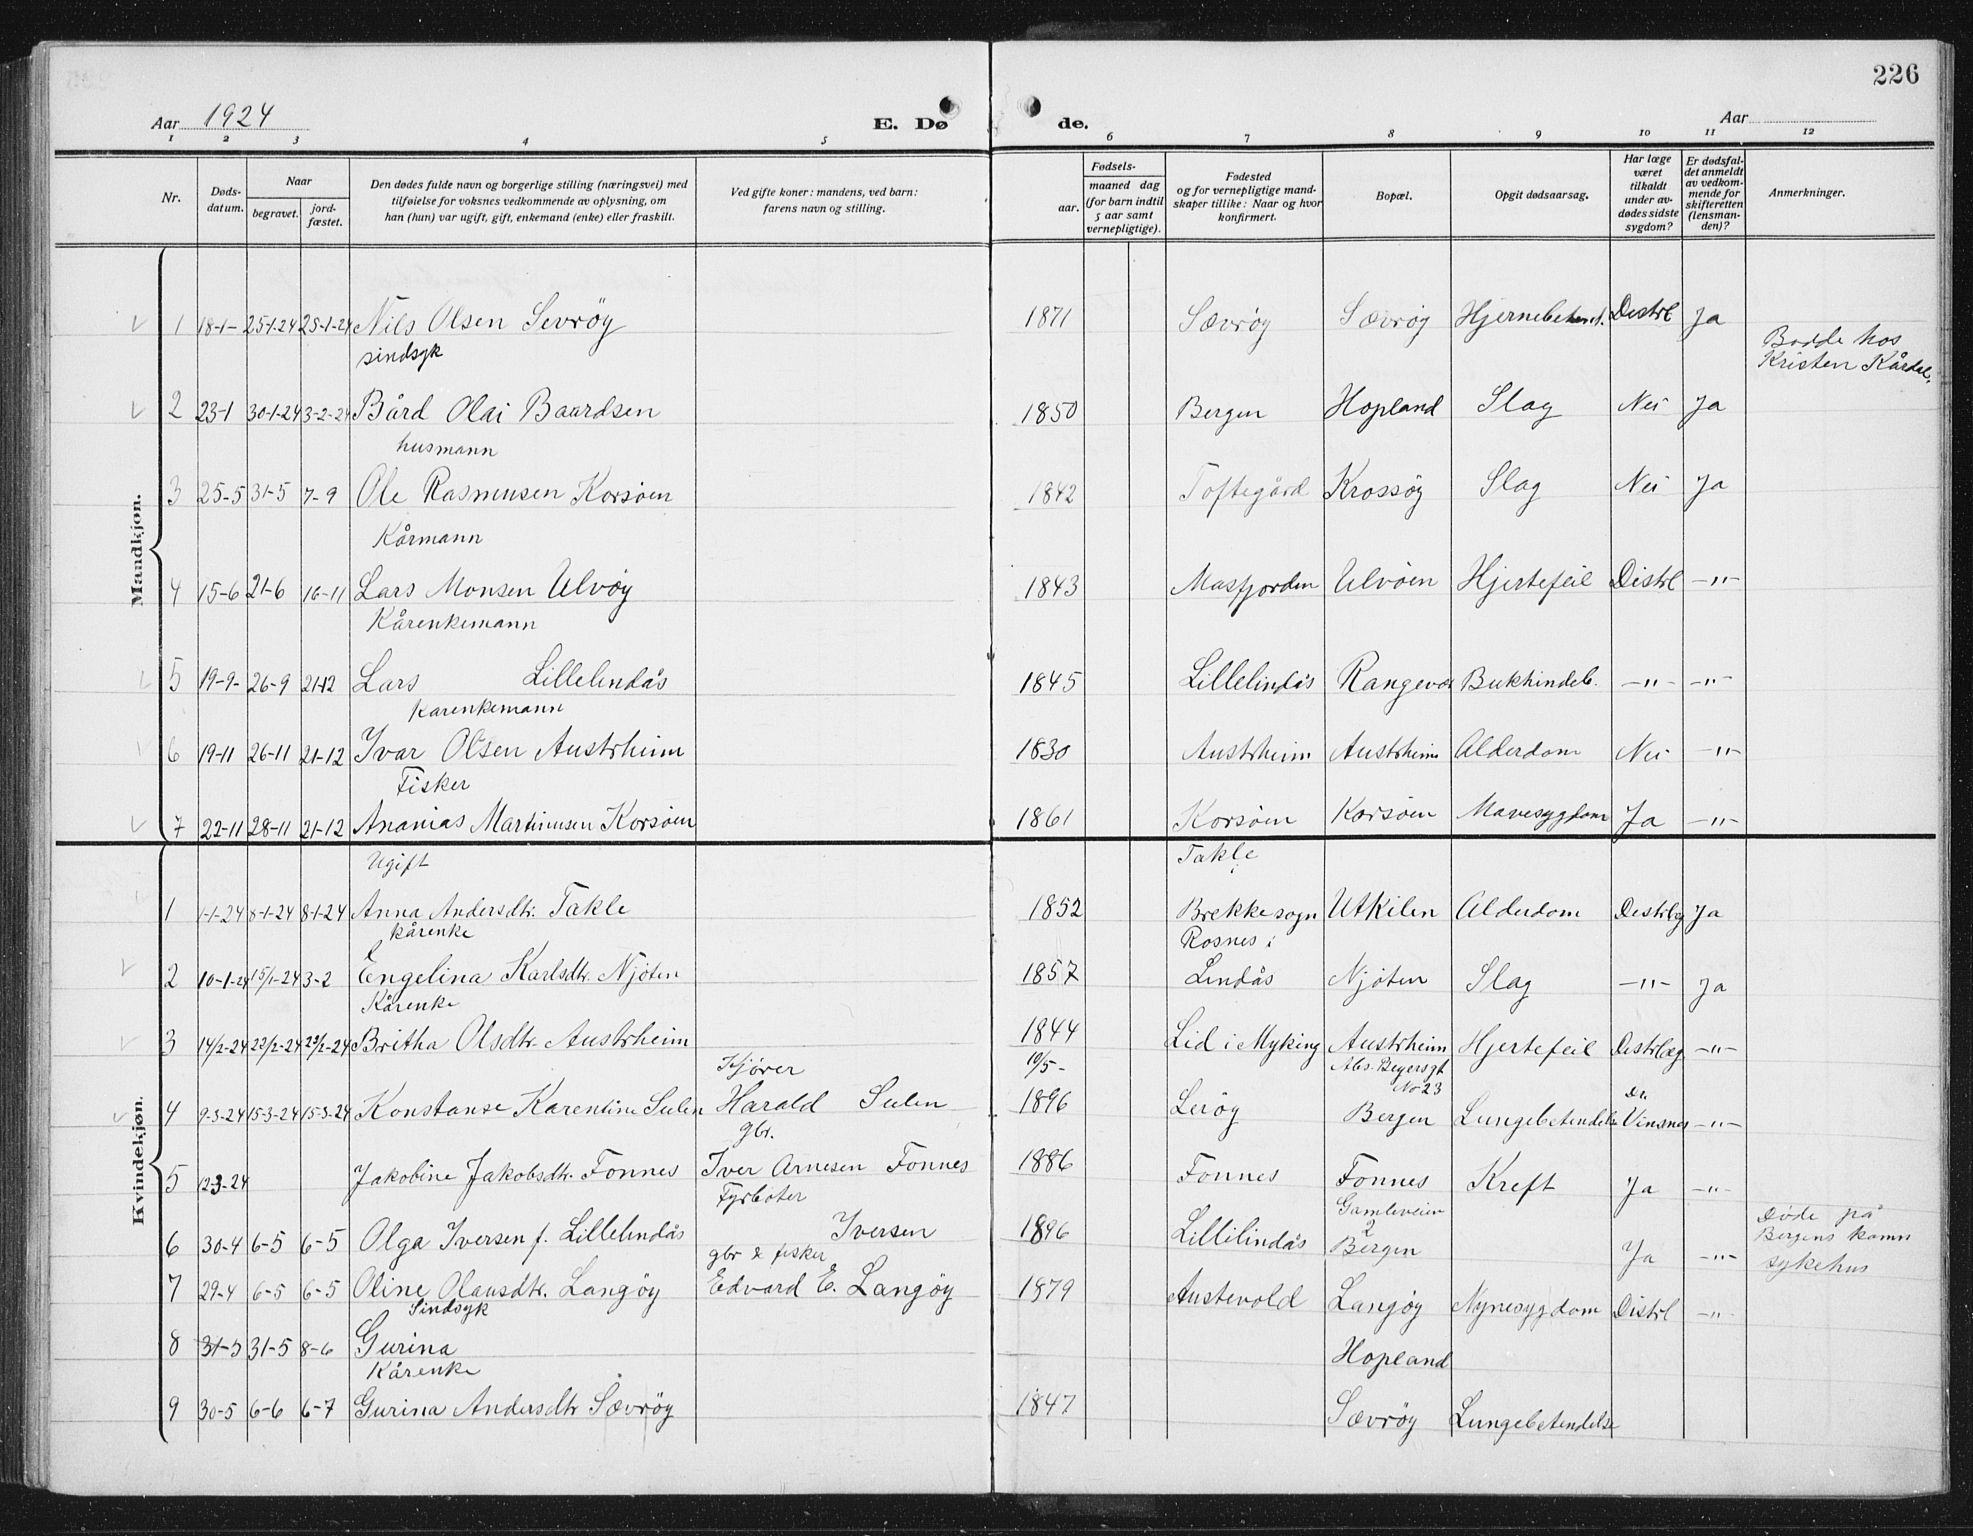 226
Aar 1924
E. Dø
de.
Aar
1 2 3 4 5 6 7 8 9 10 11 12
Nr.
Døds-
datum.
Naar
begravet.
jord-
fæstet.
Den dødes fulde navn og borgerlige stilling (næringsvei) med
tilføielse for voksnes vedkommende av oplysning, om
han (hun) var ugift, gift, enkemand (enke) eller fraskilt.
Ved gifte koner: mandens, ved barn:
farens navn og stilling.
Fødsels-
aar.
maaned dag
(for barn indtil
5 aar samt
vernepligtige).
Fødested
og for vernepligtige mand-
skaper tillike: Naar og hvor
konfirmert.
Bopæl.
Opgit dødsaarsag.
Har læge
været
tilkaldt
under av-
dødes sidste
sygdom?
Er dødsfal-
det anmeldt
av vedkom-
mende for
skifteretten
(lensman-
den)?
Anmerkninger.
Mandkjøn.
1 18-1- 25-1-24 25-1-24 Nils Olsen Sevrøy 1871 Sævrøy Sævrøy Distrl Ja
sindsyk
Bodde hos
Kristen Kårdal.
2 23-1 30-1-24 3-2-24 Bård Olai Baardsen 1850 Bergen Hopland Slag Nei Ja
husmann
3 25-5 31-5 7-9 Ole Rasmusen Korsøen 1842 Toftegård Krossøy Slag Nei Ja
Kårmann
4 15-6 21-6 16-11 Lars Monsen Ulvøy 1843 Masfjorden Ulvøen Hjertefeil Distrl -"-
Kårenkemann
5 19-9- 26-9 21-12 Lars Lillelindås 1845 Lillelindås Rangevå Bukhindeb. -"- -"-
Karenkemann
6 19-11 26-11 21-12 Ivar Olsen Austrheim 1830 Austrheim Austrheim Alderdom Nei -"-
Fisker
7 22-11 28-11 21-12 Ananias Martinusen Korsøen 1861 Korsøen Korsøen Mavesygdom Ja -"-
Kvindekjøn.
Ugift
Takle
1 1-1-24 8-1-24 8-1-24 Anna Andersdtr. Takle 1852 Brekke sogn Utkilen Alderdom Destrlæg Ja
kårenke
Rosnes i
2 10-1-24 15/1-24 3-2 Engelina Karlsdtr. Njøten 1857 Lindås Njøten Slag -"- Ja
Kårenke
3 14/2-24 22/2-24 23/2-24 Britha Olsdtr. Austrheim 1844 Lid i Myking Austrheim Hjertefeil Distrlæg -"-
Kjører
10/5-
Abs. Beyersgt
No 23
Dr.
4 9-3-24 15-3-24 15-3-24 Konstanse Karentine Sulen Harald Sulen 1896 Lerøy Bergen Lungebetendelse Vinsnes -"-
gbr.
5 12-3-24 Jakobine Jakobsdtr. Fonnes Iver Arnesen Fonnes 1886 Fonnes Fonnes Kreft Ja -"-
Fyrbøter
Gamleveien
2
6 30-4 6-5 6-5 Olga Iversen f. Lillelindås Iversen 1896 Lillilindås Bergen Ja -"-
Døde på
Bergens komn
sykehus
gbr & fisker
7 29-4 6-5 6-5 Oline Olausdtr. Langøy Edvard E. Langøy 1879 Austevold Langøy Nyresygdom Distrl -"-
Sindsyk
8 31-5 31-5 8-6 Gurina Hopland
Kårenke
9 30-5 6-6 6-7 Gurina Andersdtr Sævrøy 1847 Sævrøy Lungebetendelse